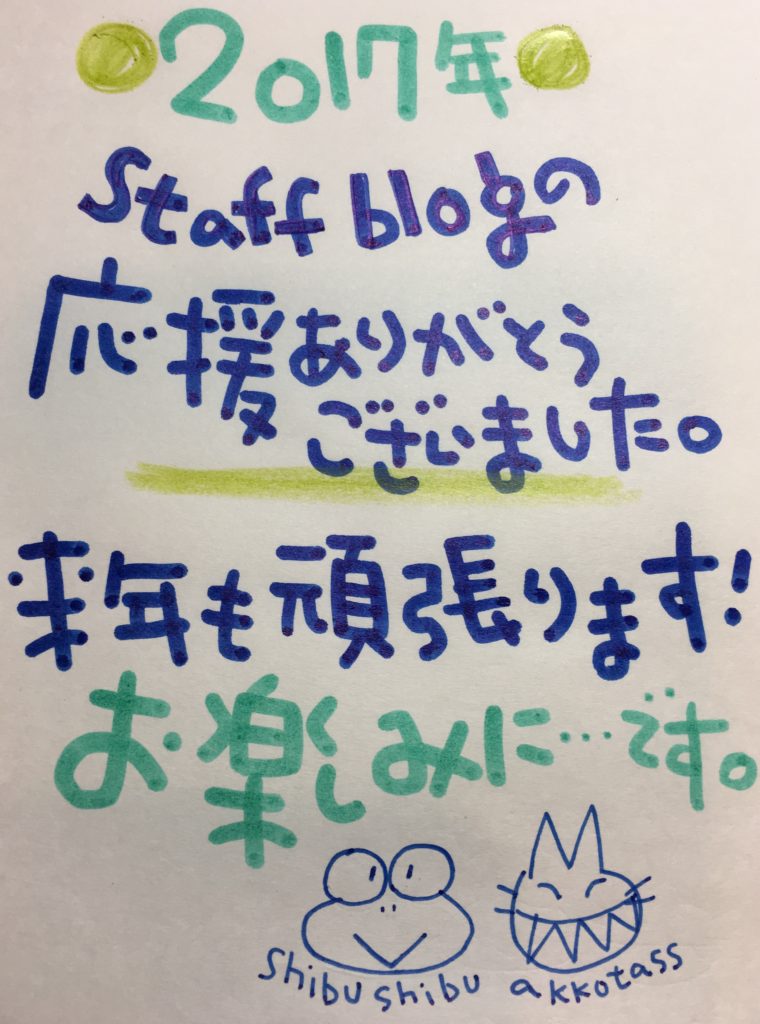 2017年
staff blogの
応援ありがとう
ございました。
来年も頑張ります!
お楽しみに…です。
shibushibu akkotass